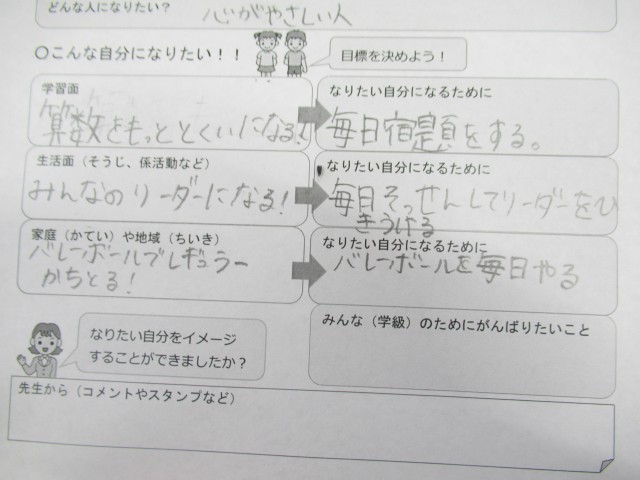 どんな人になりたい？
心がやさしい人
○こんな自分になりたい！！
目標を決めよう！
学習面
算数をもっととくいになる！
なりたい自分になるために
毎日宿題をする。
生活面（そうじ、係活動など）
みんなのリーダーになる！
なりたい自分になるために
毎日そっせんしてリーダーをひ
きうける
家庭（かてい）や地域（ちいき）
バレーボールでレギュラー
かちとる！
なりたい自分になるために
バレーボールを毎日やる
みんな（学級）のためにがんばりたいこと
なりたい自分をイメージ
することができましたか？
先生から（コメントやスタンプなど）